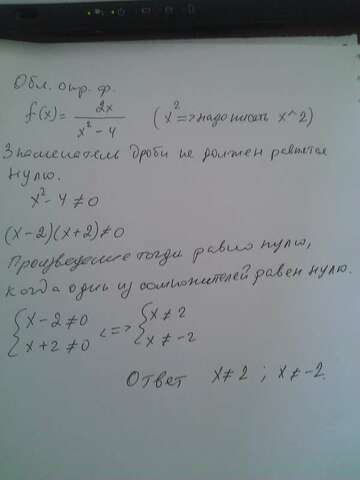 Обл. опр. ф.
f(x) = 2x / x² - 4 (x² => надо писать x^2)
Знаменатель дроби не должен равняться
нулю.
x² - 4 ≠ 0
(x-2)(x+2) ≠ 0
Произведение тогда равно нулю,
когда один из сомножителей равен нулю.
{ x - 2 ≠ 0 <=> { x ≠ 2
{ x + 2 ≠ 0 { x ≠ -2
Ответ x ≠ 2 ; x ≠ -2.